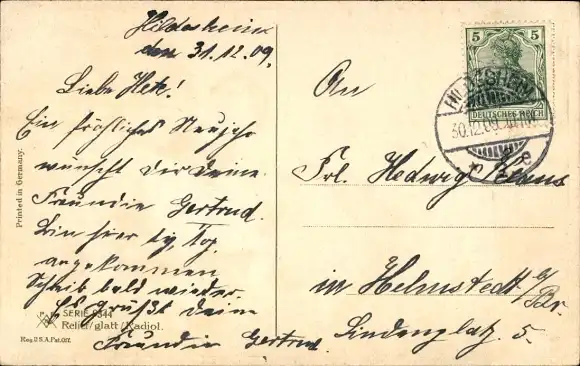 Hildesheim
den 31.12.09.
Liebe Hete!
Ein fröhliches Neujahr
wünscht dir deine
Freundin Gertrud.
Bin hier
angekommen
Schreib bald wieder.
Es grüßt deine
Freundin Gertrud.
Printed in Germany.
SERIE 9344
Relief/glatt/Radiol.
Reg. U.S.A. Pat. Off.
5 5
DEUTSCHES REICH
HILDESHEIM
30.12.09
An
Frl. Hedwig
in Helmstedt b/
Br.
Lindenplatz. 5.